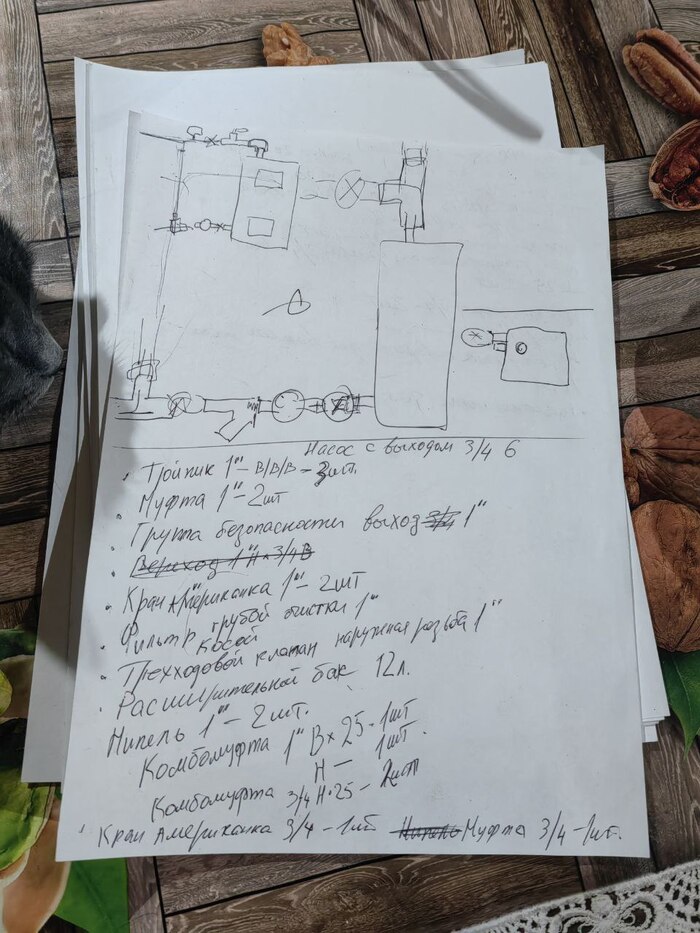 Насос с выходом 3/4 6
• Тройник 1" - В/В/В - 3шт.
• Муфта 1" - 2шт
• Группа безопасности выход 3/4 1"
• Переход 1"Н × 3/4В
• Кран Американка 1" - 2шт
• Фильтр грубой очистки 1"
косой
• Трехходовой клапан наружная резьба 1"
• Расширительной бак 12л.
Нипель 1" - 2шт.
Комбомуфта 1" В × 25 - 1шт
Н - 1шт.
Комбомуфта 3/4 Н·25 - 2шт
• Кран Американка 3/4 - 1шт Нипель Муфта 3/4 - 1шт.